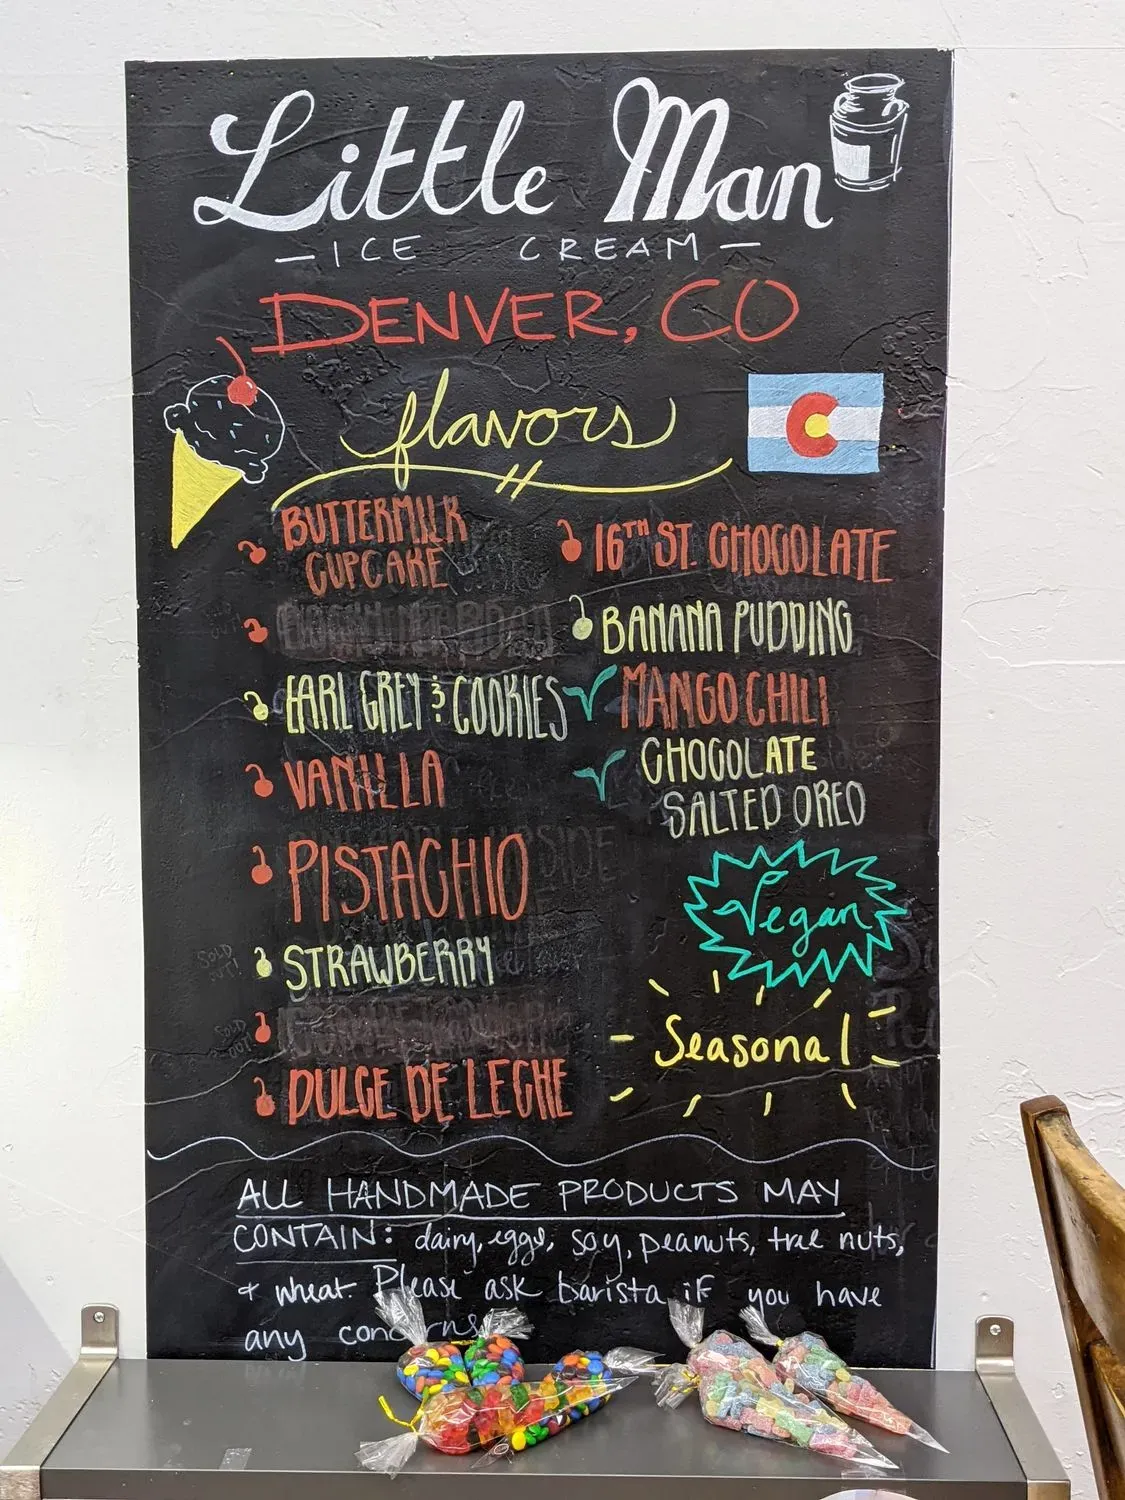 Little Man
- ICE CREAM -
DENVER, CO
flavors
BUTTERMILK
CUPCAKE
EARL GREY & COOKIES
VANILLA
PISTACHIO
STRAWBERRY
DULCE DE LECHE
16TH ST. CHOCOLATE
BANANA PUDDING
MANGO CHILI
CHOCOLATE
SALTED OREO
Vegan
Seasonal
ALL HANDMADE PRODUCTS MAY
CONTAIN: dairy, eggs, soy, peanuts, tree nuts,
+ wheat. Please ask barista if you have
any concerns